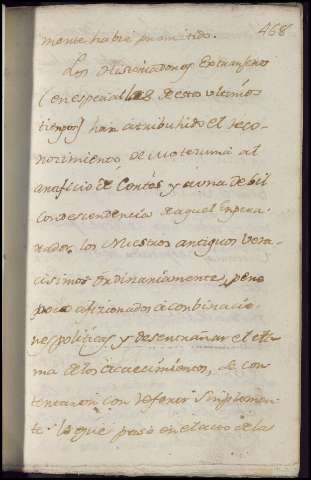 468
mente habré promitido.
Los Historiadores Extranjeros
(en especial los de estos ultimos
tiempos) han atribuhido el reco-
nocimiento, de Moteruma al
artificio de Cortés y a una debil
condescendencia de aquel Empera-
rador, los Nuestros antiguos vera-
cisimos ordinariamente, pero
poco aficionados a conbinacio-
nes politicas y desentrañar el
ma de los acaecimientos, se con
tentaron con referir simplemen-
te lo que pasó en el acto de la